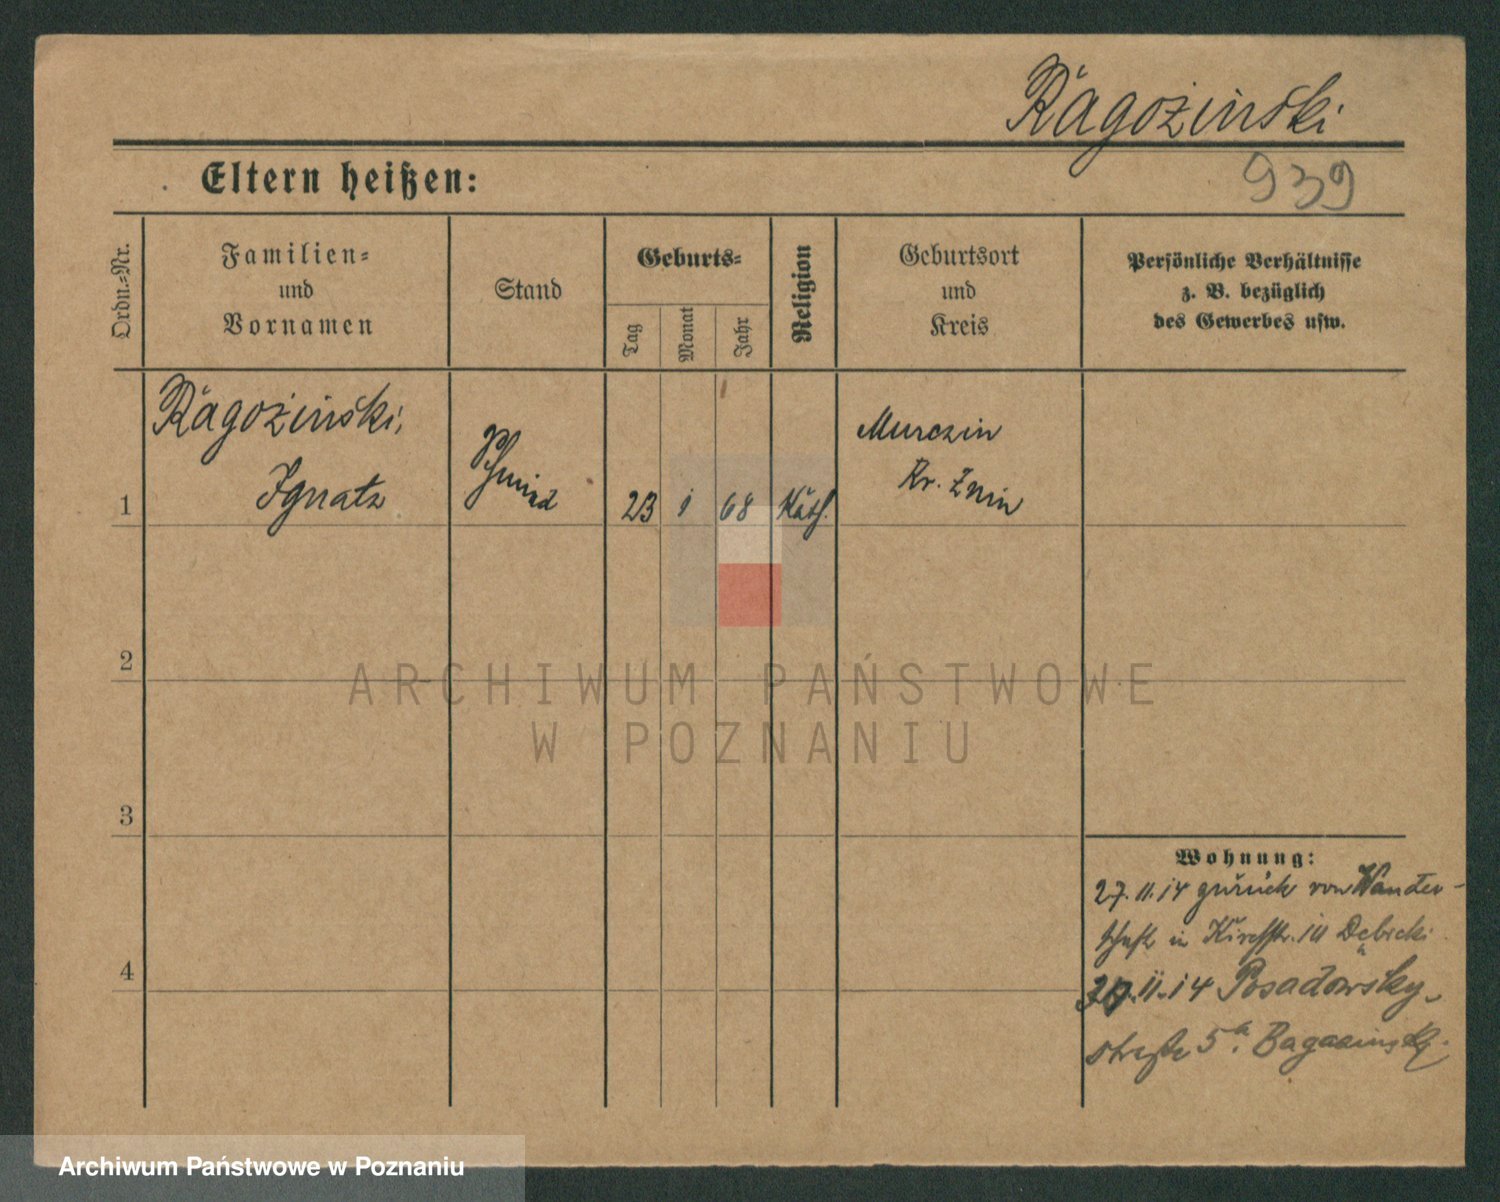 Rağożinski
939
Eltern heißen:
Ordn.-Nr.
Familien-
und
Vornamen
Stand
Geburts-
Tag
Monat
Jahr
Religion
Geburtsort
und
Kreis
Persönliche Verhältnisse
z. B. bezüglich
des Gewerbes usw.
1
Ragożinski,
Ignatz
Schmied
23
1
68
Kath.
Murczin
Kr. Znin
2
3
4
Wohnung:
27.11.14 zurück von Wander-
schaft in Kirchstr. Debicki
.11.14 Posadowsky-
straße 5a.
ARCHIWUM PAŃSTWOWE
W POZNANIU
Archiwum Państwowe w Poznaniu